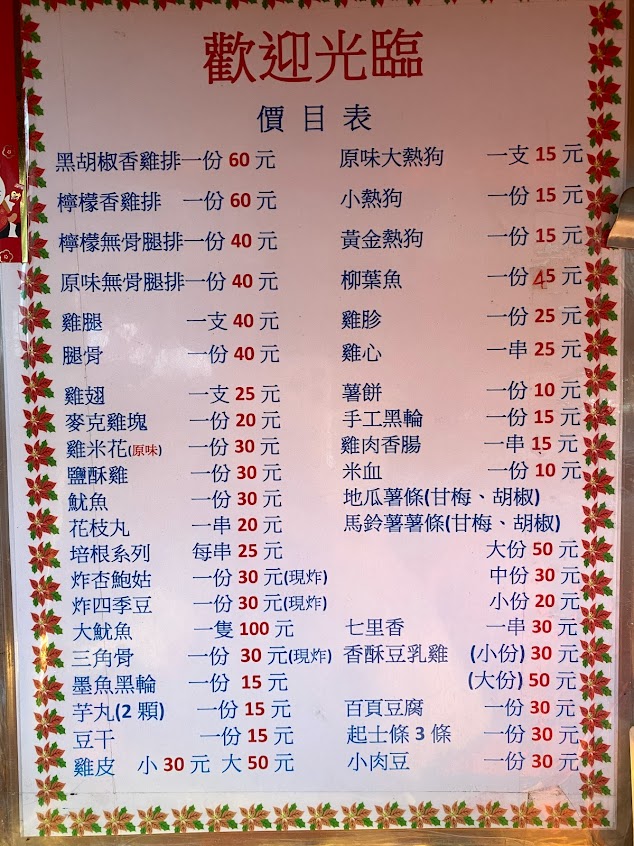 歡迎光臨
價目表
黑胡椒香雞排一份 60 元
檸檬香雞排 一份 60 元
檸檬無骨腿排一份 40 元
原味無骨腿排一份 40 元
雞腿 一支 40 元
腿骨 一份 40 元
雞翅 一支 25 元
麥克雞塊 一份 20 元
雞米花(原味) 一份 30 元
鹽酥雞 一份 30 元
魷魚 一份 30 元
花枝丸 一串 20 元
培根系列 每串 25 元
炸杏鮑姑 一份 30 元(現炸)
炸四季豆 一份 30 元(現炸)
大魷魚 一隻 100 元
三角骨 一份 30 元(現炸)
墨魚黑輪 一份 15 元
芋丸(2 顆) 一份 15 元
豆干 一份 15 元
雞皮 小 30 元 大 50 元
原味大熱狗 一支 15 元
小熱狗 一份 15 元
黃金熱狗 一份 15 元
柳葉魚 一份 45 元
雞胗 一份 25 元
雞心 一串 25 元
薯餅 一份 10 元
手工黑輪 一份 15 元
雞肉香腸 一串 15 元
米血 一份 10 元
地瓜薯條(甘梅、胡椒)
馬鈴薯薯條(甘梅、胡椒)
大份 50 元
中份 30 元
小份 20 元
七里香 一串 30 元
香酥豆乳雞 (小份) 30 元
(大份) 50 元
百頁豆腐 一份 30 元
起士條 3 條 一份 30 元
小肉豆 一份 30 元